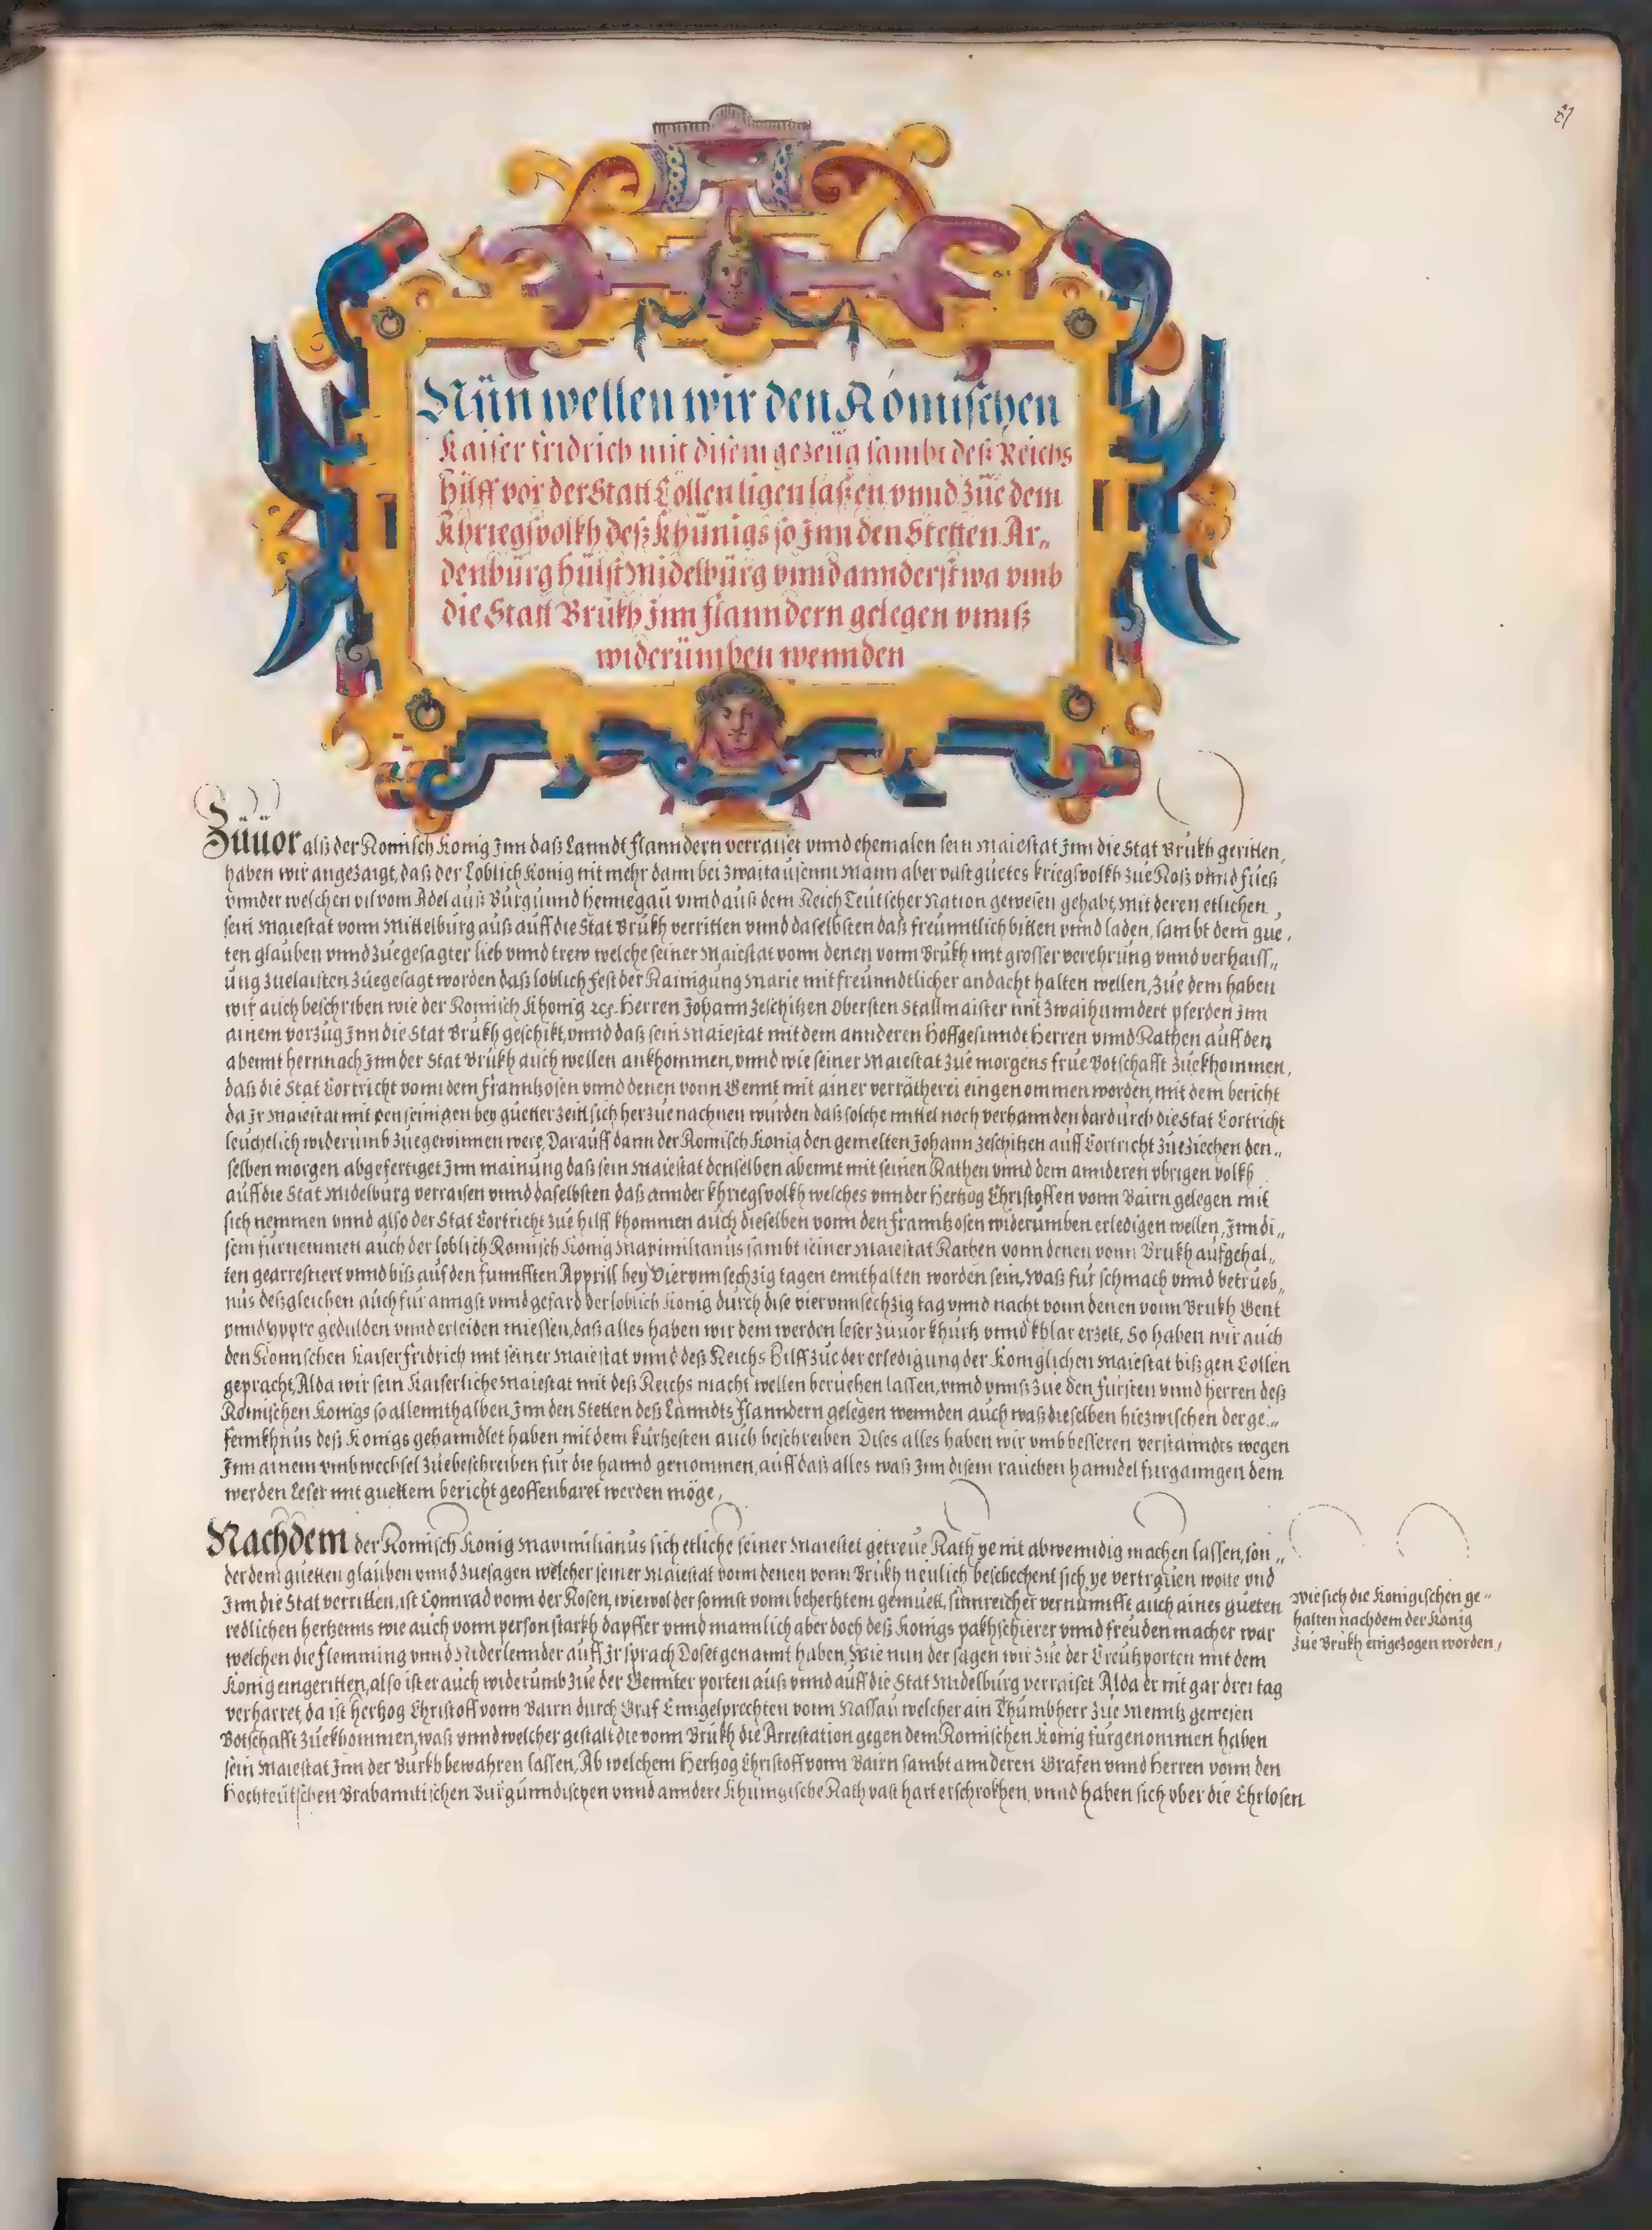 81
Nün wellen wir den Römischen
Kaiser fridrich mit disem gezeüg sambt deß Reichs
hilff vor der Statt Cöllen ligen laßen vnnd züe dem
Khriegsvolkh deß Khünigs so Inn den Stetten Ar„
denbürg hülst Midelbürg vnnd annderstwa vmb
die Statt Brükh Inn flanndern gelegen vnnß
widerümben wennden
Züuor alß der Romisch Konig Inn daß Lanndt flanndern verraiset vnnd ehemalen sein Maiestat Inn die Stat Brukh geritten,
haben wir angezaigt, daß der Loblich Konig nit mehr dann bei zwaitausennt Mann aber vast guetes kriegsvolkh zue Roß vnnd fueß
vnnder welchen vil vom Adel auß Burgunnd hennegau vnnd auß dem Reich Teutscher Nation gewesen gehabt, mit deren etlichen
sein Maiestat vonn Mittelburg auß auff die Stat Brukh verritten vnnd daselbsten daß freunntlich bitten vnnd laden, sambt dem gue,
ten glauben vnnd zuegesagter lieb vnnd trew welche seiner Maiestat vonn denen vonn Brukh mit grosser verehrung vnnd verhaiss„
ung zuelaisten zuegesagt worden daß loblich fest der Rainigung Marie mit freunndtlicher andacht halten wellen, zue dem haben
wir auch beschriben wie der Romisch Khonig Herren Johann Zeschitzen Obersten Stallmaister mit zwaihunndert pferden Inn
ainem vorzug Inn die Stat Brukh geschikt, vnnd daß sein Maiestat mit dem annderen hoffgesinndt Herren vnnd Rathen auff den
abennt hernnach Inn der Stat Brukh auch wellen ankhommen, vnnd wie seiner Maiestat zue morgens frue Botschafft zuekhommen,
daß die Stat Cortricht vonn dem frannkosen vnnd denen vonn Gennt mit ainer verrätherei eingenommen worden, mit dem bericht
da Ir Maiestat mit den seinigen bey guetter zeitt sich herzue nachnen wurden daß solche mittel noch verhannden dardurch die Stat Cortricht
leuchtlich widerumb zuegewinnen were, Darauff dann der Romisch Konig den gemelten Johann Zeschitzen auff Cortricht zueziechen den„
selben morgen abgefertiget Inn mainung daß sein Maiestat denselben abennt mit seinen Rathen vnnd dem annderen vbrigen volkh
auff die Stat Midelburg verraisen vnnd daselbsten daß annder khriegsvolkh welches vnnder Hertzog Christoffen vonn Bairn gelegen mit
sich nemmen vnnd also der Stat Cortricht zue hilff khommen auch dieselben vonn den frannkosen widerumben erledigen wellen, Inn di„
sem furnemmen auch der loblich Romisch Konig Maximilianus sambt seiner Maiestat Rathen vonn denen vonn Brukh aufgehal„
ten gearrestiert vnnd biß auf den funnfften Appriil bey Viervnnsechzig tagen ennthalten worden sein, Waß fur schmach vnnd betrueb„
nus deßgleichen auch fur anngst vnnd gefard der loblich Konig durch dise viervnnsechzig tag vnnd nacht vonn denen vonn Brukh Gent
vnnd yppre gedulden vnnd erleiden miessen, daß alles haben wir dem werden leser zuuor khurtz vnnd khlar erzelt, So haben wir auch
den Romischen Kaiser fridrich mit seiner Maiestat vnnd deß Reichs Hilff zue der erledigung der Koniglichen Maiestat biß gen Collen
gepracht, Alda wir sein Kaiserliche Maiestat mit deß Reichs macht wellen beruehen lassen, vnnd vnnß zue den fursten vnnd herren deß
Romischen Konigs so allennthalben Inn den Stetten deß Lanndts flanndern gelegen wennden auch waß dieselben hiezwischen der ge„
fennkhnus deß Konigs gehanndlet haben mit dem kurtzesten auch beschreiben Dises alles haben wir vmb besseren verstanndts wegen
Inn ainem vmbwechsel zuebeschreiben fur die hannd genommen, auff daß alles waß Inn disem rauchen hanndel furganngen dem
werden Leser mit guettem bericht geoffenbaret werden möge,
Nachdem der Romisch Konig Maximilianus sich etliche seiner Maiestet getreue Rath ye nit abwenndig machen lassen, son„
der dem guetten glauben vnnd zuesagen welcher seiner Maiestat vonn denen vonn Brukh neulich beschechent sich ye vertrauen wolte vnd
Inn die Stat verritten, ist Connrad vonn der Rosen, wiewol der sonnst vonn behertztem gemuett, sinnreicher vernunnfft auch aines gueten
redlichen hertzenns wie auch vonn person starkh dapffer vnnd mannlich aber doch deß Konigs pakhschierer vnnd freudenmacher war
welchen die flemming vnnd Niderlennder auff Ir sprach Doset genannt haben, Wie nun der sagen wir zue der Creutzporten mit dem
Konig eingeritten, also ist er auch widerumb zue der Gennter porten auß vnnd auff die Stat Midelburg verraiset Alda er nit gar drei tag
verharret, da ist Hertzog Christoff vonn Bairn durch Graf Enngelprechten vonn Nassau welcher ain Thumbherr zue Menntz gewesen
Botschafft zuekhommen, waß vnnd welcher gestalt die vonn Brukh die Arrestation gegen dem Romischen Konig furgenommen haben
sein Maiestat Inn der Burkh bewahren lassen, Ab welchem Hertzog Christoff vonn Bairn sambt annderen Grafen vnnd Herren vonn den
hochteutschen Brabanntischen Burgunndischen vnnd anndere Khunigische Rath vast hart erschrokhen, vnnd haben sich vber die Ehrlosen
Wie sich die Konigischen ge„
halten nachdem der Konig
zue Brukh eingezogen worden,